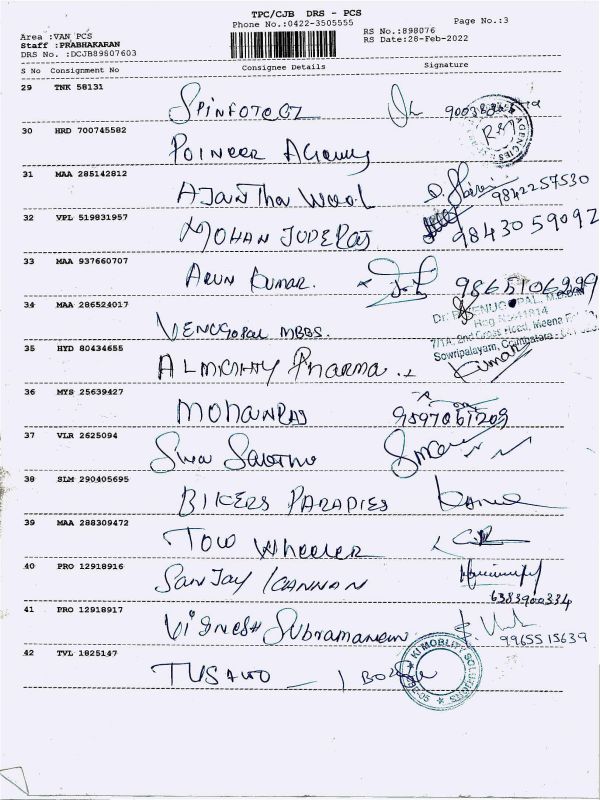 TPC/CJB DRS - PCS
Phone No.:0422-3505555
Page No.:3
Area :VAN PCS
Staff :PRABHAKARAN
DRS No. :DCJB89807603
RS No.:898076
RS Date:28-Feb-2022
S No Consignment No Consignee Details Signature
29 TNK 58131
AGENCIES
30 HRD 700745582
POINEER Agency
31 MAA 285142812
AJANTha Wool 9842257530
32 VPL 519831957
MOHAN 98430 59092
33 MAA 937660707
ARUN Kumar. 9865106299
34 MAA 286524017
VENUGOPAL MBBS.
Reg No:41814
7/1A, 2nd Cross Road, Meena
Sowripalayam, Coimbatore
Kumar
35 HYD 80434655
Pharma
36 MYS 25639427
MOHANRAJ 9597061209
37 VLR 2625094
Siva
38 SLM 290405695
BIKERS PARADIES
39 MAA 288309472
TOW Wheeler
40 PRO 12918916
SANJAY KANNAN
6383900334
41 PRO 12918917
VIGNESH Subramaniam
9965515639
42 TVL 1825147
TVS AUTO - 1 BOX
KI MOBILITY SOLUTIONS